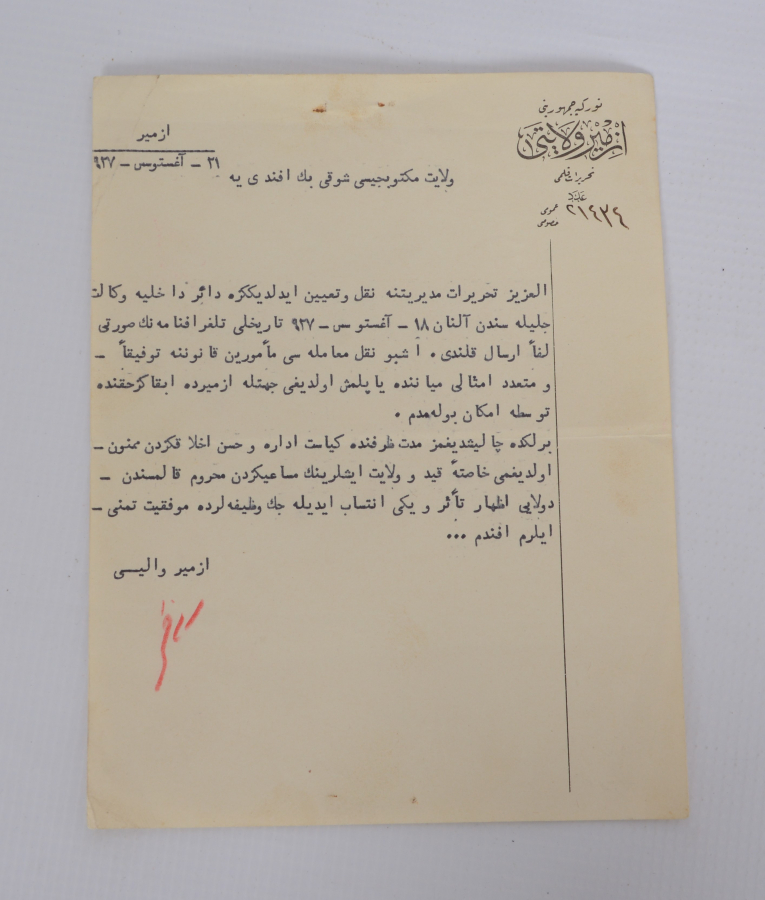 توركيه جمهوريتى
ازمير ولايتى
تحريرات قلمى
عدد
عمومى ٢١٤٣٤
خصوصى
ازمير
٢١ - آغستوس - ٩٢٧
ولايت مكتوبجيسى شوقى بك افندى يه
العزيز تحريرات مديريتنه نقل وتعيين ايدلديككزه دائر داخليه وكالت
جليله سندن آلنان ١٨ - آغستوس - ٩٢٧ تاريخلى تلغرافنامه نك صورتى
لفاً ارسال قلندى. اشبو نقل معامله سى مأمورين قانوننه توفيقاً -
و متعدد امثالى ميا ننده ياپلمش اولديغى جهتله ازميرده ابقاكزحقنده
توسطه امكان بوله مدم .
برلكده چاليشديغمز مدت ظرفنده كياست اداره و حسن اخلاقكزدن ممنون -
اولديغمى خاصتهً قيد و ولايت ايشلرينك مساعيكزدن محروم قالمسندن -
دولايى اظهار تأثر و يكى انتساب ايديله جك وظيفه لرده موفقيت تمنى -
ايلرم افندم ...
ازمير واليسى